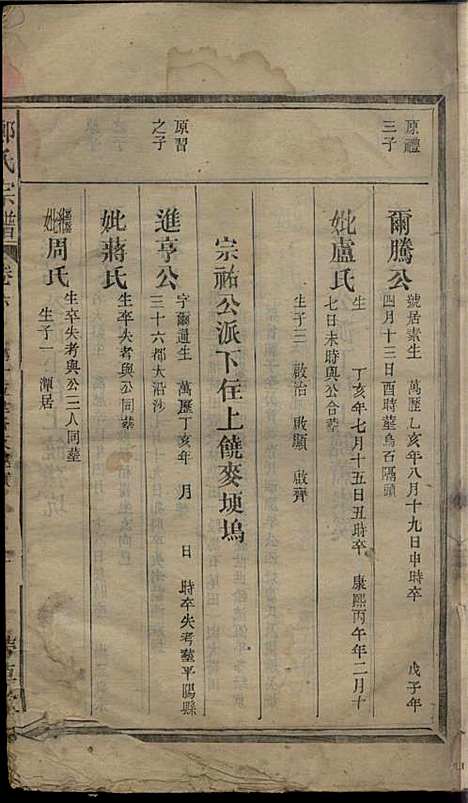 原禮
三子
爾騰公
號居素生 萬歷乙亥年八月十九日申時卒 戊子年
四月十三日酉時塟烏石隔頭
妣盧氏
生 丁亥年七月十五日丑時卒 康熙丙午年二月十
七日未時與公合塟
生子三 啟治 啟顯 啟齊
宗祐公派下住上饒麥埂塢
原習
之子
進亨公
字爾通生 萬歷丁亥年 月 日 時卒失考塟平陽縣
三十六都大沿沙
妣蔣氏
生卒失考與公同塟
繼妣周氏
生卒失考與公三人同塟
生子一 潭居
氏宗譜
卷六